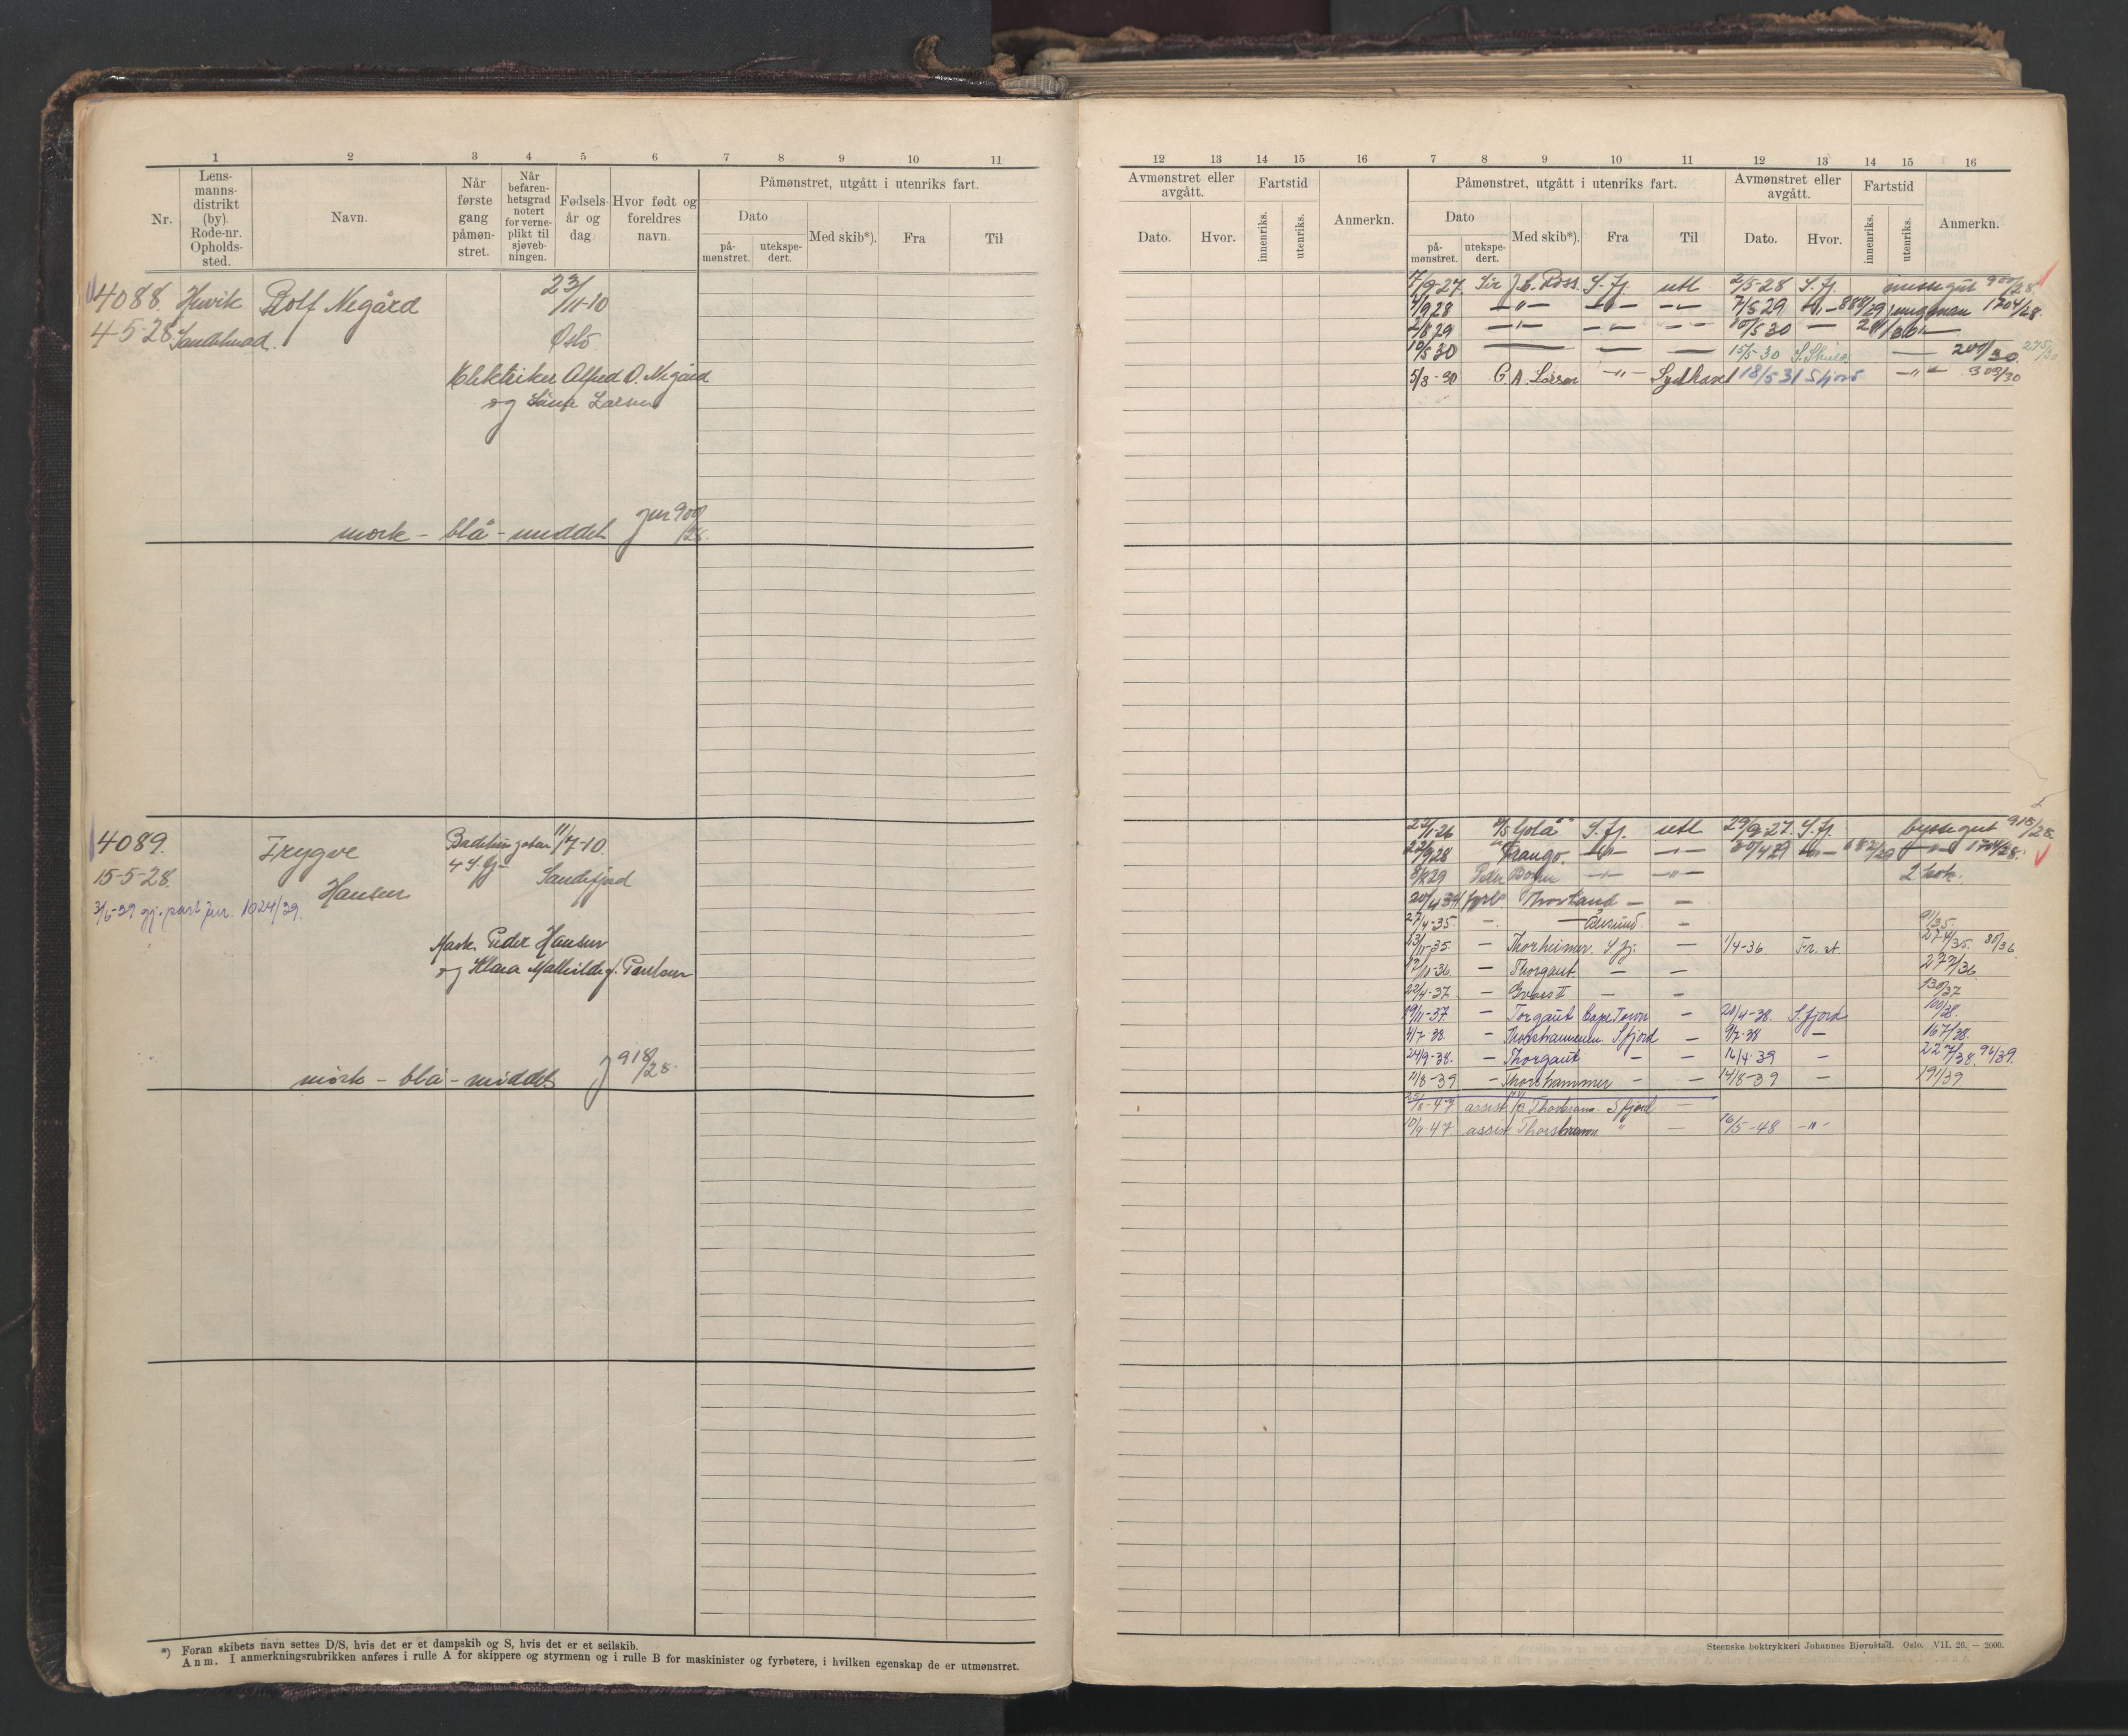 1 2 3 4 5 6 7 8 9 10 11
Nr.
Lens-
manns-
distrikt
(by).
Rode-nr.
Opholds-
sted.
Navn.
Når
første
gang
påmøn-
stret.
Når
befaren-
hetsgrad
notert
for verne-
plikt til
sjøveb-
ningen.
Fødsels-
år og
dag
Hvor født og
foreldres
navn.
Påmønstret, utgått i utenriks fart.
Dato
på-
mønstret.
utekspe-
dert.
Med skib*).
Fra
Til
4088. Rolf Negård 23/11-10
4-5-28
Oslo
Elektriker Alfred O. Negård
og Larsen
mørk - blå - middel jnr 900/28.
4089. Trygve 11/7-10
15-5-28. Hansen Sandefjord
3/6-39 1024/39.
Mask. Peder Hansen
og Klara Mathilde f. Paulsen
mørk - blå - middel J 918/28.
*) Foran skibets navn settes D/S, hvis det er et dampskib og S, hvis det er et seilskib.
Anm. I anmerkningsrubrikken anføres i rulle A for skippere og styrmenn og i rulle B for maskinister og fyrbøtere, i hvilken egenskap de er utmønstret.
12 13 14 15 16 7 8 9 10 11 12 13 14 15 16
Avmønstret eller
avgått.
Dato.
Hvor.
Fartstid
innenriks.
utenriks.
Anmerkn.
Påmønstret, utgått i utenriks fart.
Dato
på-
mønstret.
utekspe-
dert.
Med skib*).
Fra
Til
Avmønstret eller
avgått.
Dato.
Hvor.
Fartstid
innenriks.
utenriks.
Anmerkn.
/9-27. Sir J. C. Ross. S.fj. utl 2/5-28 S.fj. messegut 900/28.
4/9 28 —"— —"— —"— 7/5 29 —"— jungman 1704/28.
2/8 29 —"— —"— — — 10/5 30 —
10/5 30 — — — 15/5-30 — 201/30.
5/8-30 C. A. Larsen —"— Sydhavet 18/5 31 Sfjord —"— 309/30
/11-26 Solå S.fj. utl 29/9-27. S.fj. byssegut 918/28.
22/9 28 —"— —"— —"— 1704/28.
29 Peder Bogen —"— —"— 2 kok.
20/4 34 fyrb Thorland — —
27/4-35. — — Ålesund. — 91/35.
23/11-35 — Thorheimer. S fj. — 1/4-36 Fr. st. 274/35. 80/36
/11-36 — Thorgaut — — 277/36
22/4-37 — Gvas II — — 130/37
19/11-37 — Torgaut Cape Town — 20/4-38. S.fjord 100/38.
4/7-38. — S.fjord — 9/7-38 — 167/38.
24/9-38. — Thorgaut — — 16/4-39 — 227/38. 96/39.
11/8-39 — Thorshammer — — 14/8-39 — 191/39
/8-47 assist Thorshamm. S fjord —
10/9-47 assist Thorshamm " — 16/5-48 —"—
Steenske boktrykkeri Johannes Bjørnstad. Oslo. VII. 26. — 2000.